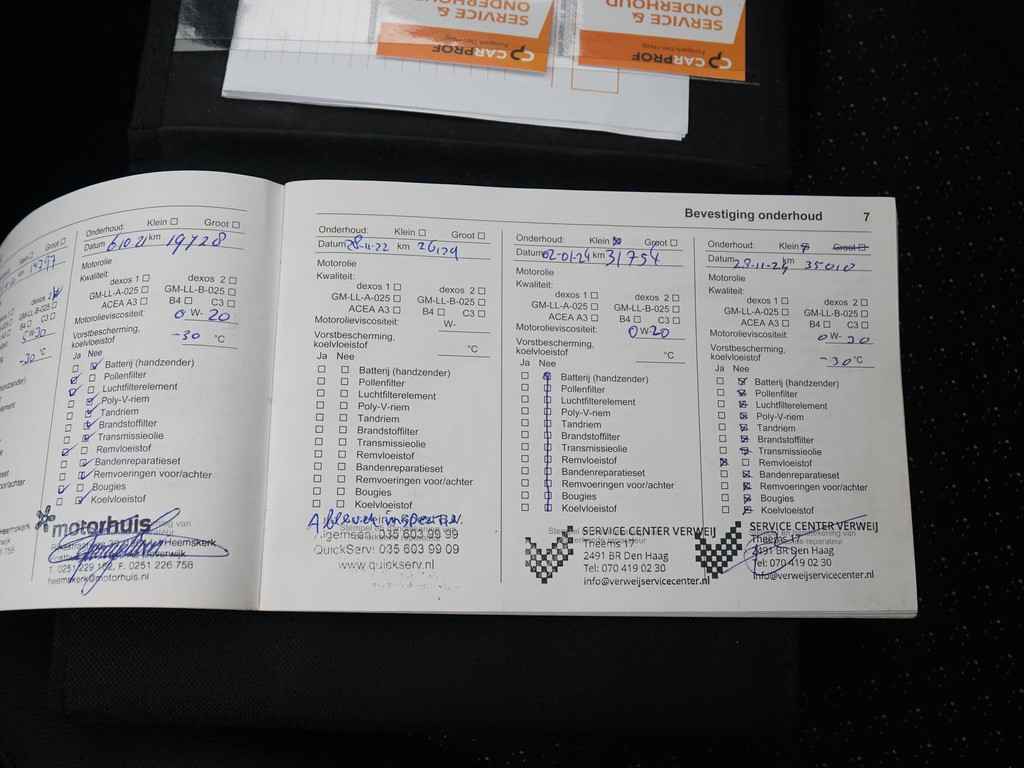 SERVICE &
ONDERHOUD
CARPROF
SERVICE &
ONDERHOUD
CARPROF
Bevestiging onderhoud 7
Groot
19797
Onderhoud: Klein Groot
Datum 6 10 21 km 19728
Motorolie
Kwaliteit:
dexos 1 dexos 2
GM-LL-A-025 GM-LL-B-025
ACEA A3 B4 C3
Motorolieviscositeit: 0 W- 20
Vorstbescherming, koelvloeistof -30 °C
Ja Nee
Batterij (handzender)
Pollenfilter
Luchtfilterelement
Poly-V-riem
Tandriem
Brandstoffilter
Transmissieolie
Remvloeistof
Bandenreparatieset
Remvoeringen voor/achter
Bougies
Koelvloeistof
motorhuis
Heemskerk
T. 0251 229 162, F. 0251 226 758
heemskerk@motorhuis.nl
Onderhoud: Klein Groot
Datum 28-11-22 km
Motorolie
Kwaliteit:
dexos 1 dexos 2
GM-LL-A-025 GM-LL-B-025
ACEA A3 B4 C3
Motorolieviscositeit: W-
Vorstbescherming,
koelvloeistof °C
Ja Nee
Batterij (handzender)
Pollenfilter
Luchtfilterelement
Poly-V-riem
Tandriem
Brandstoffilter
Transmissieolie
Remvloeistof
Bandenreparatieset
Remvoeringen voor/achter
Bougies
Koelvloeistof
Algemeen 035 603 99 99
QuickServ: 035 603 99 09
www.quickserv.nl
Onderhoud: Klein Groot
Datum 02-01-24 km 31754
Motorolie
Kwaliteit:
dexos 1 dexos 2
GM-LL-A-025 GM-LL-B-025
ACEA A3 B4 C3
Motorolieviscositeit: 0 W- 20
Vorstbescherming,
koelvloeistof °C
Ja Nee
Batterij (handzender)
Pollenfilter
Luchtfilterelement
Poly-V-riem
Tandriem
Brandstoffilter
Transmissieolie
Remvloeistof
Bandenreparatieset
Remvoeringen voor/achter
Bougies
Koelvloeistof
SERVICE CENTER VERWEIJ
Theems 17
2491 BR Den Haag
Tel: 070 419 02 30
info@verweijservicecenter.nl
Onderhoud: Klein Groot
Datum 28-11-24 km 35010
Motorolie
Kwaliteit:
dexos 1 dexos 2
GM-LL-A-025 GM-LL-B-025
ACEA A3 B4 C3
Motorolieviscositeit: 0 W- 20
Vorstbescherming,
koelvloeistof -30 °C
Ja Nee
Batterij (handzender)
Pollenfilter
Luchtfilterelement
Poly-V-riem
Tandriem
Brandstoffilter
Transmissieolie
Remvloeistof
Bandenreparatieset
Remvoeringen voor/achter
Bougies
Koelvloeistof
SERVICE CENTER VERWEIJ
Theems 17
2491 BR Den Haag
Tel: 070 419 02 30
info@verweijservicecenter.nl